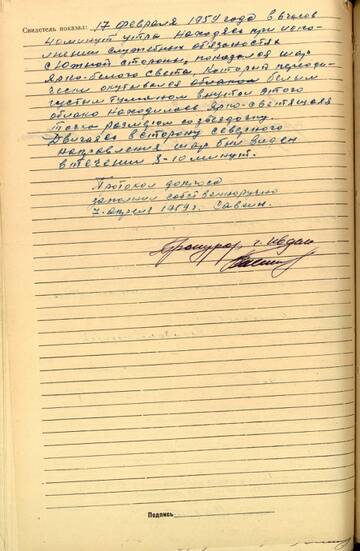 Свидетель показал: 17 февраля 1959 года в 6 часов
40 минут утра находясь при испо-
лнении служебных обязаностях
с южной стороны, показался шар
Ярко-белого света, который периоди-
чески окутывался облаком белым
густым туманом внутри этого
облако находилась Ярко-светящаяся
точка размером со звездочку.
Двигаясь в сторону северного
направления шар был виден
в течении 8-10 минут.
Протокол допроса
заполнил собственноручно
7. апреля 1959 г. Савкин.
Прокурор г. Ивдель
Подпись